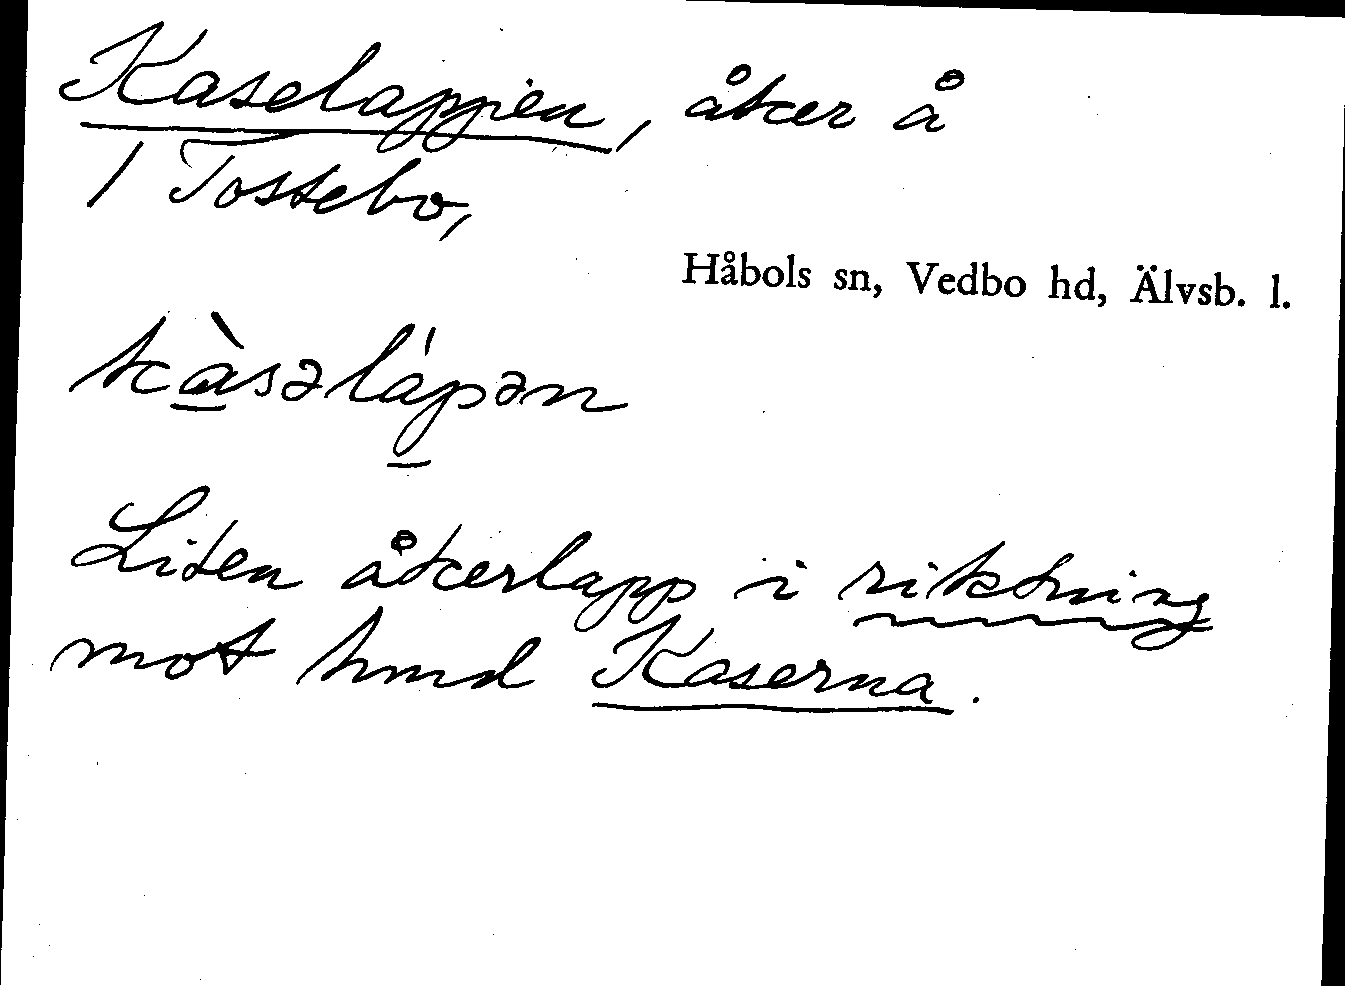 Kaselappen, åker å
1 Tostebo,
Håbols sn, Vedbo hd, Älvsb. l.
kàsəlápən
Liten åkerlapp i riktning
mot hmd Kaserna.